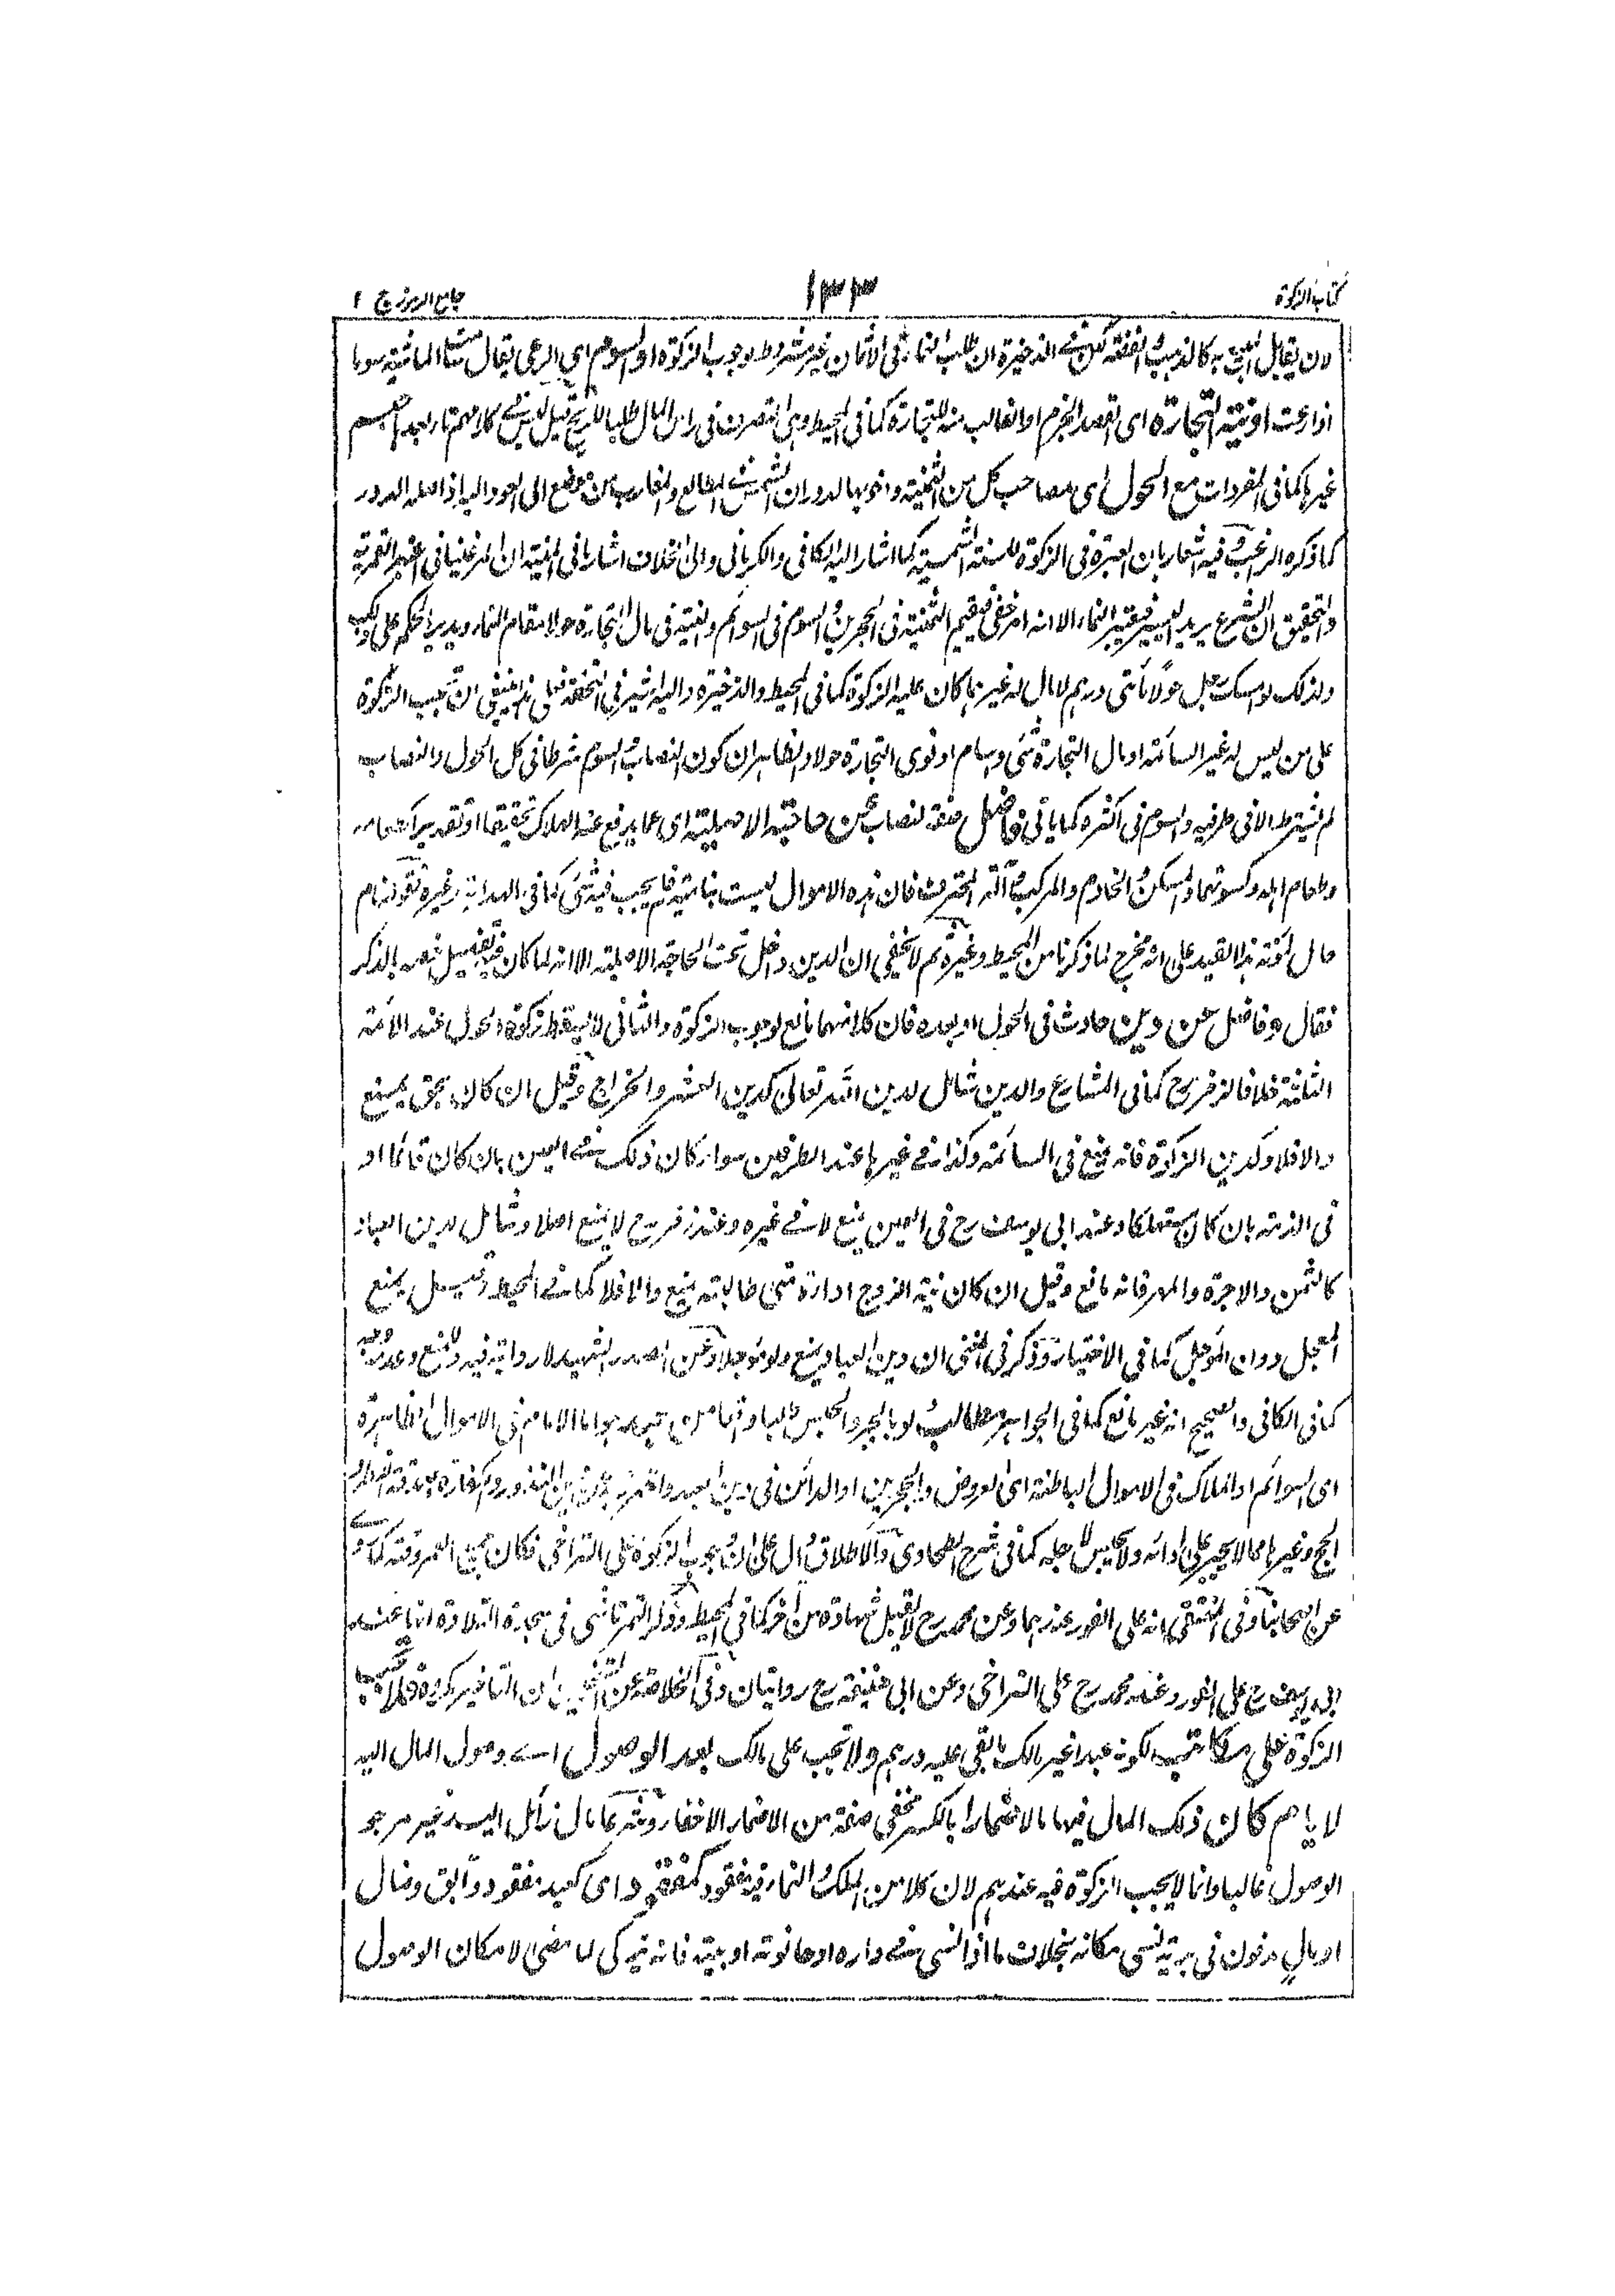 كتاب الزكوة
١٣٣
جامع الرموز ج ١
لان يقابل به كالذهب والفضة لكن في الذخيرة ان طلب النماء في الاثمان غير مشروط لوجوب الزكوة او السوم اي الرعي يقال الماشية سوما
اذا رعت او نية التجارة اي القصد الجزم او الغالب منه للتجارة كما في المحيط وهي التصرف في راس المال طلبا للربح قيل ليس في كلامهم تاء بعده جيم
غيرها كما في المفردات مع الحول اي مصاحب كل من الثمنية واخويها لدوران الشمس في المطالع والمغارب من موضع الى العود اليه اذ اصله الدور
كما ذكره الراغب وفيه اشعار بان العبرة في الزكوة للسنة الشمسية كما اشار اليه الكافي والكرماني والى الخلاف اشار في المنية ان المرغيناني اعتبر القمرية
والتحقيق ان الشرع يريد اليسير فيعتبر النماء الا انه امر خفي فيقيم الثمنية في الحجرين والسوم في السوائم والنية في مال التجارة حولا مقام النماء ويدير الحكم على ذلك
ولذلك لو امسك رجل حولا مأتى درهم لا مال له غيرها كان عليه الزكوة كما في المحيط والذخيرة واليه اشير في التحفة فعلى هذا ينبغي ان تجب الزكوة
على من ليس له غير السائمة او مال التجارة شئ واسام او نوى التجارة حولا والظاهر ان كون النصاب والسوم شرطا في كل الحول والنصاب
لم يشترط الا في طرفيه والسوم في اكثره كما ياتي فاضل صفة لنصاب عن حاجته الاصلية اي عما يدفع عنه الهلاك تحقيقا او تقديرا كطعامه
وطعام اهله وكسوتهما والمسكن والخادم والمركب وآلة المحترف فان هذه الاموال ليست بنامية فلم يجب فيه شئ كما في الهداية وغيره فقوله نام
مال لمؤنة هذا القيد على انه مخرج لما ذكرنا من المحيط وغيره ثم لا يخفى ان الدين داخل تحت الحاجة الاصلية الا انه لما كان فيه تفصيل خصه بالذكر
فقال وفاضل عن دين حادث في الحول او بعده فان كلا منهما مانع لوجوب الزكوة والثاني لا يسقط زكوة الحول عند الائمة
الثلثة خلافا لزفر رح كما في المشارع والدين شامل لدين الله تعالى كدين العشر والخراج وقيل ان كان بحق يمنع
والا فلا وكدين الزكوة فانه يمنع في السائمة وكذا في غيرها عند الطرفين سواء كان ذلك في العين بان كان قائما او
في الذمة بان كان مستهلكا وعند ابي يوسف رح في العين يمنع لا في غيره وعند زفر رح لا يمنع اصلا وشامل لدين العباد
كالثمن والاجرة والمهر فانه مانع وقيل ان كان نية الزوج اداءه متى طالبته يمنع والا فلا كما في المحيط وقيل يمنع
المعجل دون المؤجل كما في الاختيار وذكر في المغني ان دين العباد يمنع ولو مؤجلا وعن الصدر الشهيد لا رواية فيه وللمنع وعدمه وجه
كما في الكافي والصحيح انه غير مانع كما في الجواهر مطالب لو بالجبر والحبس طالبا من عبد هو اما الامام في الاموال الظاهرة
اي السوائم او الملاك في الاموال الباطنة اي العروض والحجرين او الدائن في دين العبد واحترز به عن دين النذور والكفارة وصدقة الفطر
الحج وغيرها مما لا يجبر على ادائه ولا يحبس لاجله كما في شرح الطحاوي والاطلاق دال على ان وجوب الزكوة على التراخي فكان جميع العمر وقته كما
عن اصحابنا وفي المنتقى انه على الفور عندهما وعن محمد رح لا يقبل شهادة من اخر كما في المحيط وذكر التمرتاشي في سجدة التلاوة انها عند
ابي يوسف رح على الفور وعند محمد رح على التراخي وعن ابي حنيفة رح روايتان وفي الخلاصة عن الشيخين ان التاخير يكره فلا تجب
الزكوة على مكاتب لكونه عبدا غير مالك ما بقي عليه درهم ولا تجب على مالك بعد الوصول اي وصول المال اليه
لايام كان ذلك المال فيها مالا ضمارا بالكسر مخفي صفة من الاضمار الاخفاء وشرعا مال زائل اليد غير مرجو
الوصول غالبا وانما لا يجب الزكوة فيه عندهم لان كلا من الملك والنماء فيه مفقود كمفقود اي كعبد مفقود وآبق وضال
او مال مدفون في برية نسي مكانه بخلاف ما اذا نسي في داره او حانوته او بيته فانه يزكى لما مضى لامكان الوصول